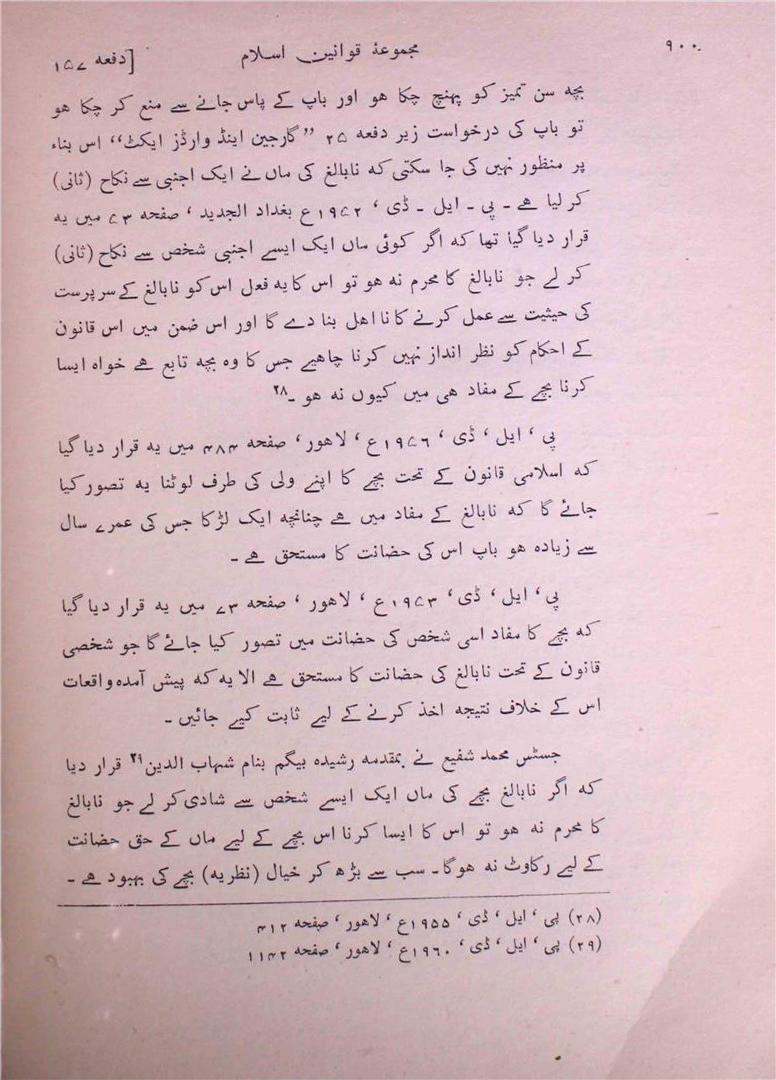 ۹۰۰
مجموعۂ قوانین اسلام
[دفعہ ۱۵۷
بچہ سن تمیز کو پہنچ چکا ہو اور باپ کے پاس جانے سے منع کر چکا ہو
تو باپ کی درخواست زیر دفعہ ۲۵ ”گارجین اینڈ وارڈز ایکٹ“ اس بناء
پر منظور نہیں کی جا سکتی کہ نابالغ کی ماں نے ایک اجنبی سے نکاح (ثانی)
کر لیا ہے ۔ پی ۔ ایل ۔ ڈی ، ۱۹۵۲ع بغداد الجدید ، صفحہ ۷۳ میں یہ
قرار دیا گیا تھا کہ اگر کوئی ماں ایک ایسے اجنبی شخص سے نکاح (ثانی)
کر لے جو نابالغ کا محرم نہ ہو تو اس کا یہ فعل اس کو نابالغ کے سرپرست
کی حیثیت سے عمل کرنے کا نا اہل بنا دے گا اور اس ضمن میں اس قانون
کے احکام کو نظر انداز نہیں کرنا چاہیے جس کا وہ بچہ تابع ہے خواہ ایسا
کرنا بچے کے مفاد ہی میں کیوں نہ ہو ۔۲۸
پی ، ایل ، ڈی ، ع ، لاہور ، صفحہ ۴۸۴ میں یہ قرار دیا گیا
کہ اسلامی قانون کے تحت بچے کا اپنے ولی کی طرف لوٹنا یہ تصور کیا
جائے گا کہ نابالغ کے مفاد میں ہے چنانچہ ایک لڑکا جس کی عمر ۷ سال
سے زیادہ ہو باپ اس کی حضانت کا مستحق ہے ۔
پی ، ایل ، ڈی ، ع ، لاہور ، صفحہ ۷۳ میں یہ قرار دیا گیا
کہ بچے کا مفاد اسی شخص کی حضانت میں تصور کیا جائے گا جو شخصی
قانون کے تحت نابالغ کی حضانت کا مستحق ہے الا یہ کہ پیش آمدہ واقعات
اس کے خلاف نتیجہ اخذ کرنے کے لیے ثابت کیے جائیں ۔
جسٹس محمد شفیع نے بمقدمہ رشیدہ بیگم بنام شہاب الدین۲۹ قرار دیا
کہ اگر نابالغ بچے کی ماں ایک ایسے شخص سے شادی کر لے جو نابالغ
کا محرم نہ ہو تو اس کا ایسا کرنا اس بچے کے لیے ماں کے حق حضانت
کے لیے رکاوٹ نہ ہوگا ۔ سب سے بڑھ کر خیال (نظریہ) بچے کی بہبود ہے ۔
(۲۸) پی ، ایل ، ڈی ، ۱۹۵۵ع ، لاہور ، صفحہ ۴۱۲
(۲۹) پی ، ایل ، ڈی ، ۱۹۶۰ع ، لاہور ، صفحہ ۱۱۴۲